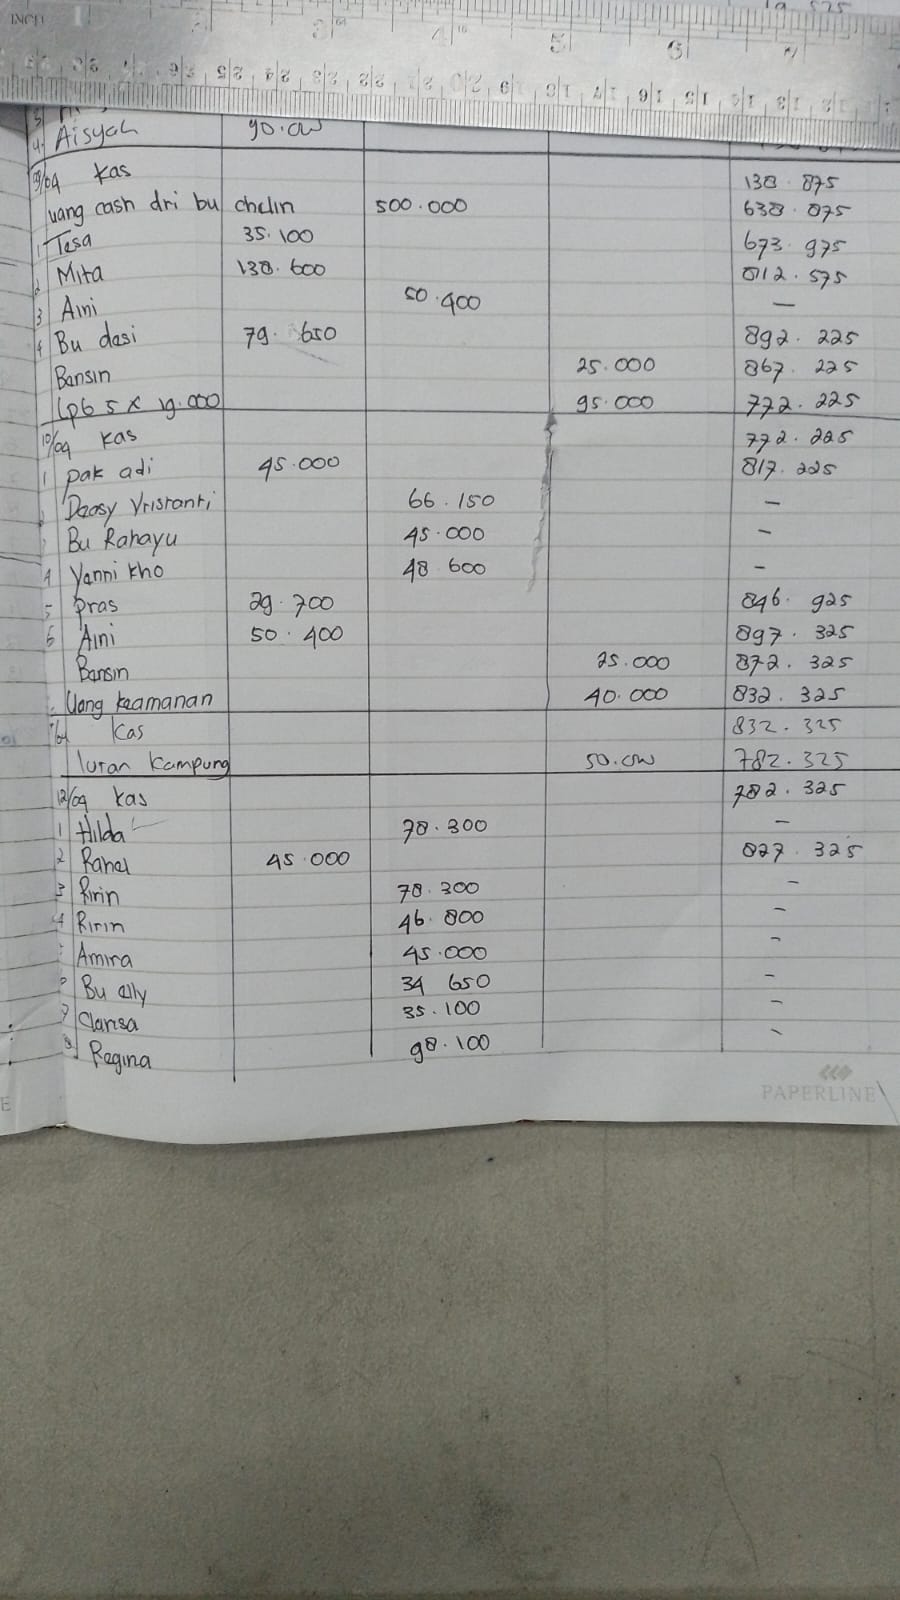 4. Aisyah 90.000
09/09 kas 138.875
uang cash dri bu chelin 500.000 638.875
1 Tesa 35.100 673.975
2 Mita 138.600 812.575
3 Aini 50.400 —
4 Bu desi 79.650 892.225
Bensin 25.000 867.225
Lpb 5 x 19.000 95.000 772.225
10/09 kas 772.225
1 pak adi 45.000 817.225
Deasy Yristanti 66.150 —
Bu Rahayu 45.000 -
4 Yenni kho 48.600 -
5 pras 29.700 846.925
6 Aini 50.400 897.325
Bensin 25.000 872.325
Uang keamanan 40.000 832.325
kas 832.325
Iuran kampung 50.000 782.325
12/09 kas 782.325
1 Hilda 78.300 -
2 Rahel 45.000 827.325
3 Ririn 78.300 -
4 Ririn 46.800 -
Amira 45.000 -
6 Bu elly 34 650 -
7 Clarisa 35.100 -
8 Regina 98.100 -
PAPERLINE